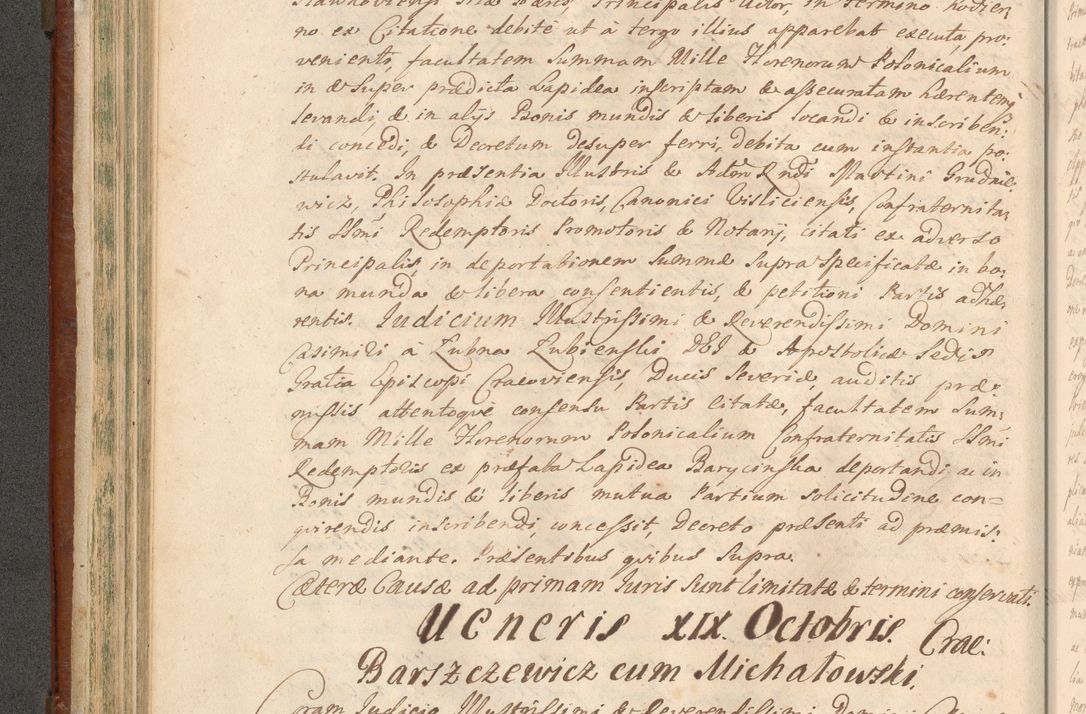 no ex Citatione debite ut à tergo illius apparebat executa, pro:
venienti, facultatem Summam Mille Florenorum Polonicalium
in & super prædicta Lapidea inscriptam & assecuratam hærentem,
levandi, & in alijs Bonis mundis & liberis locandi & inscriben:
di concedi, & Decretum desuper ferri, debita cum instantia po:
stulavit. In præsentia Illustris & Adm Rndi Martini Grudnie:
wicz, Philosophiæ Doctoris, Canonici Visliciensis, Confraternita:
tis SSmi Redemptoris Promotoris & Notarij, citati ex adverso
Principalis, in deportationem Summæ supra specificatæ in bo:
na munda & libera consentientis, & petitioni Partis adhæ:
rentis. Iudicium Illustrissimi & Reverendissimi Domini
Casimiri à Łubna Łubienski DEI & Apostolicæ Sedis
Gratia Episcopi Cracoviensis, Ducis Severiæ, auditis præ:
missis attentoque consensu Partis Citatæ, facultatem Sum:
mam Mille Florenorum Polonicalium Confraternitatis SSmi
Redemptoris ex præfata Lapidea Barycinska deportandi, ac in
Bonis mundis & liberis mutua Partium solicitudine con=
quirendis inscribendi, concessit, Decreto præsenti ad præmis:
sa mediante. Præsentibus quibus supra.
Cæteræ Causæ ad primam Iuris sunt limitatæ & termini conservati.
Veneris XIX. Octobris. Crac:
Barszczewicz cum Michałowski.
Coram Iudicio Illustrissimi & Reverendissimi Domini